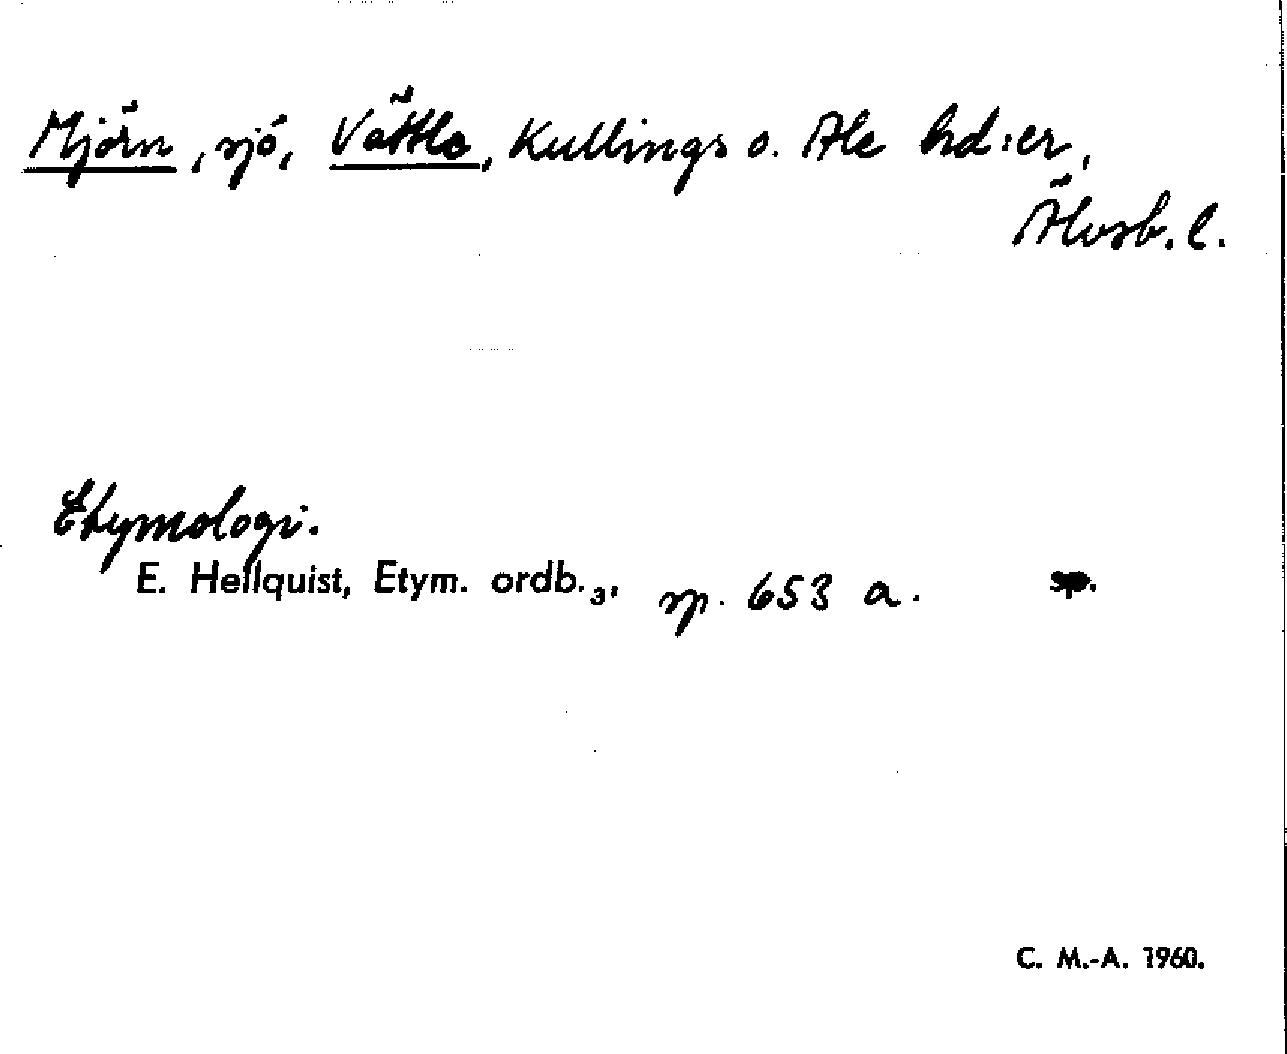 Mjörn, sjö, Vättle, Kullings o. Ale hd:er,
Älvsb. l.
Etymologi.
E. Hellquist, Etym. ordb.₃, sp. 653 a. sp.
C. M.-A. 1960.